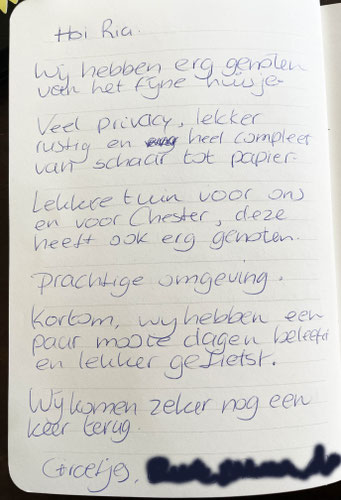 Hoi Ria.
Wij hebben erg genoten
van het fijne huisje.
Veel privacy, lekker
rustig en heel compleet
van schaar tot papier.
Lekkere tuin voor ons
en voor Chester, deze
heeft ook erg genoten.
Prachtige omgeving.
Kortom, wij hebben een
paar mooie dagen beleefd
en lekker gefietst.
Wij komen zeker nog een
keer terug.
Groetjes,